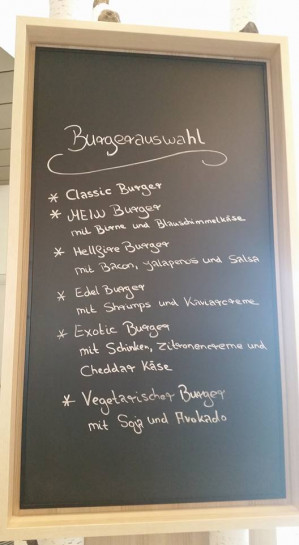 Burgerauswahl
* Classic Burger
* MEIN Burger
mit Birne und Blauschimmelkäse
* Hellfire Burger
mit Bacon, Jalapenos und Salsa
* Edel Burger
mit Shrimps und Kaviarcreme
* Exotic Burger
mit Schinken, Zitronencreme und
Cheddar Käse
* Vegetarischer Burger
mit Soja und Avokado